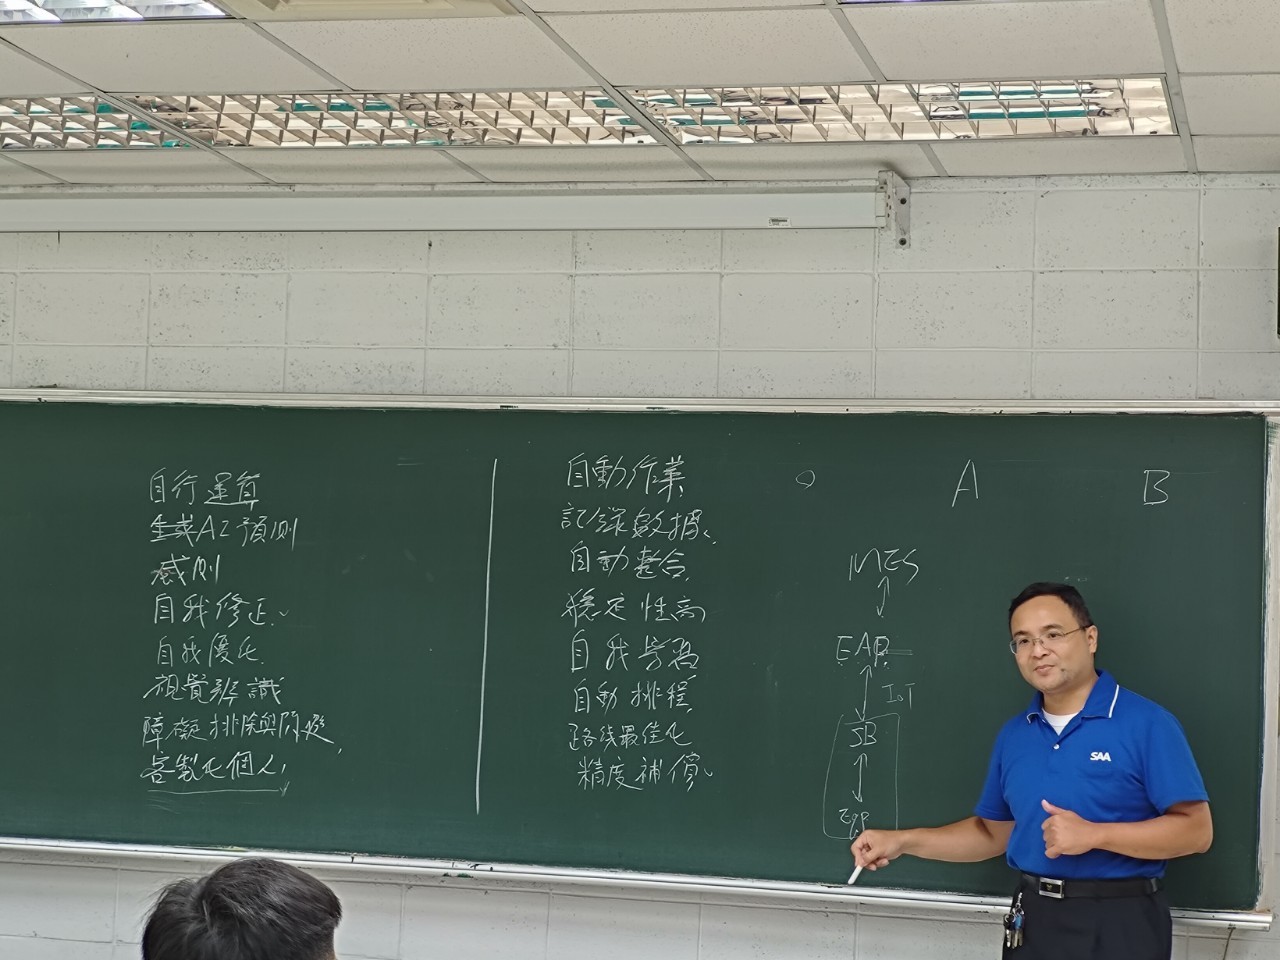 自行運算
生成AI預測
感測
自我修正、
自我優化.
視覺辨識
障礙排除與閃避,
客製化個人,
自動作業、
記錄數據、
自動整合,
穩定性高,
自我學習
自動排程,
路线最佳化
精度補償、
A
B
MES
EAP
IoT
SB
Eqp
SAA